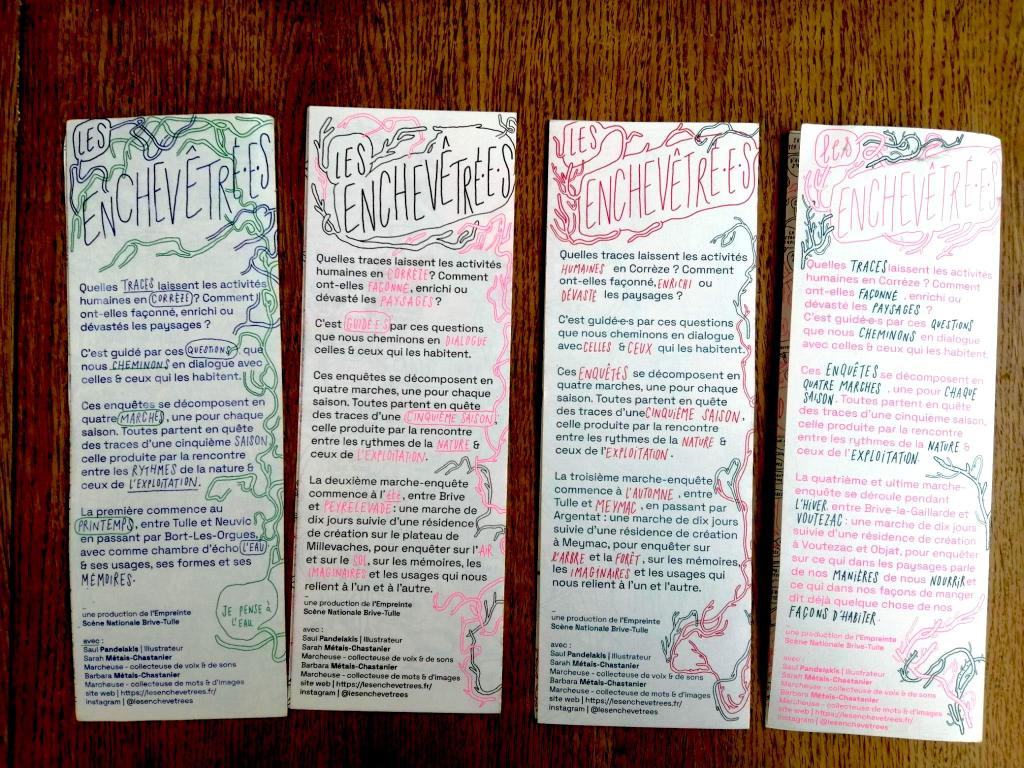 LES
ENCHEVÊTRÉ·E·S
Quelles TRACES laissent les activités
humaines en CORRÈZE ? Comment
ont-elles façonné, enrichi ou
dévastés les paysages ?
C'est guidé par ces QUESTIONS, que
nous CHEMINONS en dialogue avec
celles & ceux qui les habitent.
Ces enquêtes se décomposent en
quatre MARCHES, une pour chaque
saison. Toutes partent en quête
des traces d'une cinquième SAISON
celle produite par la rencontre
entre les RYTHMES de la nature &
ceux de L'EXPLOITATION.
La première commence au
PRINTEMPS, entre Tulle et Neuvic
en passant par Bort-Les-Orgues,
avec comme chambre d'écho L'EAU
& ses usages, ses formes et ses
MÉMOIRES.
JE PENSE À
L'EAU
une production de l'Empreinte
Scène Nationale Brive-Tulle
avec :
Saul Pandelakis | Illustrateur
Sarah Métais-Chastanier
Marcheuse - collecteuse de voix & de sons
Barbara Métais-Chastanier
Marcheuse - collecteuse de mots & d'images
site web | https://lesenchevetrees.fr/
instagram | @lesenchevetrees
LES
ENCHEVÊTRÉ·E·S
Quelles traces laissent les activités
humaines en CORRÈZE ? Comment
ont-elles FAÇONNÉ, enrichi ou
dévasté les PAYSAGES ?
C'est GUIDÉ·E·S par ces questions
que nous cheminons en DIALOGUE
celles & ceux qui les habitent.
Ces enquêtes se décomposent en
quatre marches, une pour chaque
saison. Toutes partent en quête
des traces d'une CINQUIÈME SAISON,
celle produite par la rencontre
entre les rythmes de la NATURE &
ceux de L'EXPLOITATION.
La deuxième marche-enquête
commence à l'été, entre Brive
et PEYRELEVADE : une marche de
dix jours suivie d'une résidence
de création sur le plateau de
Millevaches, pour enquêter sur l'AIR
et sur le SOL, sur les mémoires, les
IMAGINAIRES et les usages qui nous
relient à l'un et à l'autre.
une production de l'Empreinte
Scène Nationale Brive-Tulle
avec :
Saul Pandelakis | Illustrateur
Sarah Métais-Chastanier
Marcheuse - collecteuse de voix & de sons
Barbara Métais-Chastanier
Marcheuse - collecteuse de mots & d'images
site web | https://lesenchevetrees.fr/
instagram | @lesenchevetrees
LES
ENCHEVÊTRÉ·E·S
Quelles traces laissent les activités
HUMAINES en Corrèze ? Comment
ont-elles façonné, ENRICHI ou
DÉVASTÉ les paysages ?
C'est guidé·e·s par ces questions
que nous cheminons en dialogue
avec CELLES & CEUX qui les habitent.
Ces ENQUÊTES se décomposent en
quatre marches, une pour chaque
saison. Toutes partent en quête
des traces d'une CINQUIÈME SAISON,
celle produite par la rencontre
entre les rythmes de la NATURE &
ceux de L'EXPLOITATION.
La troisième marche-enquête
commence à L'AUTOMNE, entre
Tulle et MEYMAC, en passant par
Argentat : une marche de dix jours
suivie d'une résidence de création
à Meymac, pour enquêter sur
L'ARBRE et la FORÊT, sur les mémoires,
les IMAGINAIRES et les usages qui
nous relient à l'un et à l'autre.
une production de l'Empreinte
Scène Nationale Brive-Tulle
avec :
Saul Pandelakis | Illustrateur
Sarah Métais-Chastanier
Marcheuse - collecteuse de voix & de sons
Barbara Métais-Chastanier
Marcheuse - collecteuse de mots & d'images
site web | https://lesenchevetrees.fr/
instagram | @lesenchevetrees
LES
ENCHEVÊTRÉ·E·S
Quelles TRACES laissent les activités
humaines en Corrèze ? Comment
ont-elles FAÇONNÉ, enrichi ou
dévasté les PAYSAGES ?
C'est guidé·e·s par ces QUESTIONS
que nous CHEMINONS en dialogue
avec celles & ceux qui les habitent.
Ces ENQUÊTES se décomposent en
QUATRE MARCHES, une pour CHAQUE
SAISON. Toutes partent en quête
des traces d'une cinquième saison,
celle produite par la rencontre
entre les rythmes de la NATURE &
ceux de L'EXPLOITATION.
La quatrième et ultime marche-
enquête se déroule pendant
L'HIVER, entre Brive-la-Gaillarde et
VOUTEZAC : une marche de dix jours
suivie d'une résidence de création
à Voutezac et Objat, pour enquêter
sur ce qui dans les paysages parle
de nos MANIÈRES de nous NOURRIR et
ce qui dans nos façons de manger
dit déjà quelque chose de nos
FAÇONS D'HABITER.
une production de l'Empreinte
Scène Nationale Brive-Tulle
avec :
Saul Pandelakis | Illustrateur
Sarah Métais-Chastanier
Marcheuse - collecteuse de voix & de sons
Barbara Métais-Chastanier
Marcheuse - collecteuse de mots & d'images
site web | https://lesenchevetrees.fr/
instagram | @lesenchevetrees